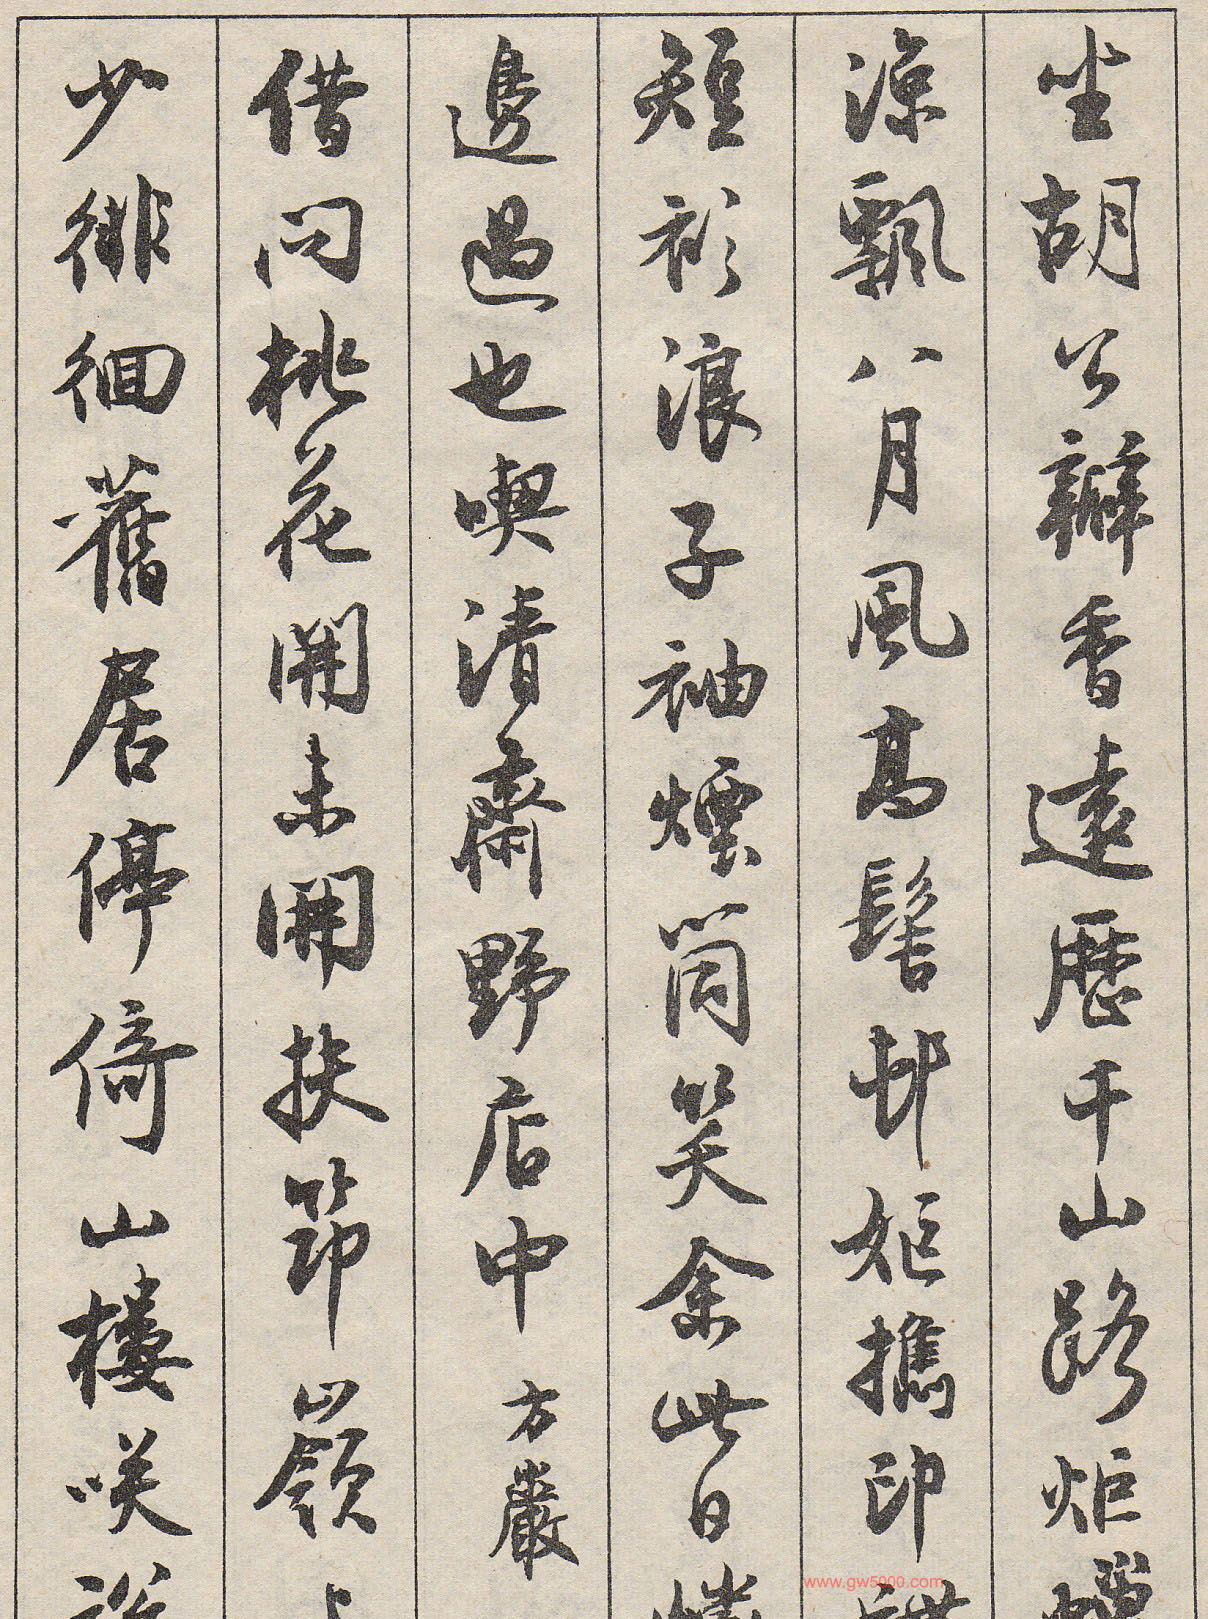 坐胡公瓣香遠歷千山路炬
涼飄八月風高髻邨姬攜印
短衫浪子袖煙筒笑余此日
邊過也喫清齋野店中 方巖
借问桃花開未開扶筇山嶺
少徘徊舊居停倚山樓咲
www.gw5000.com